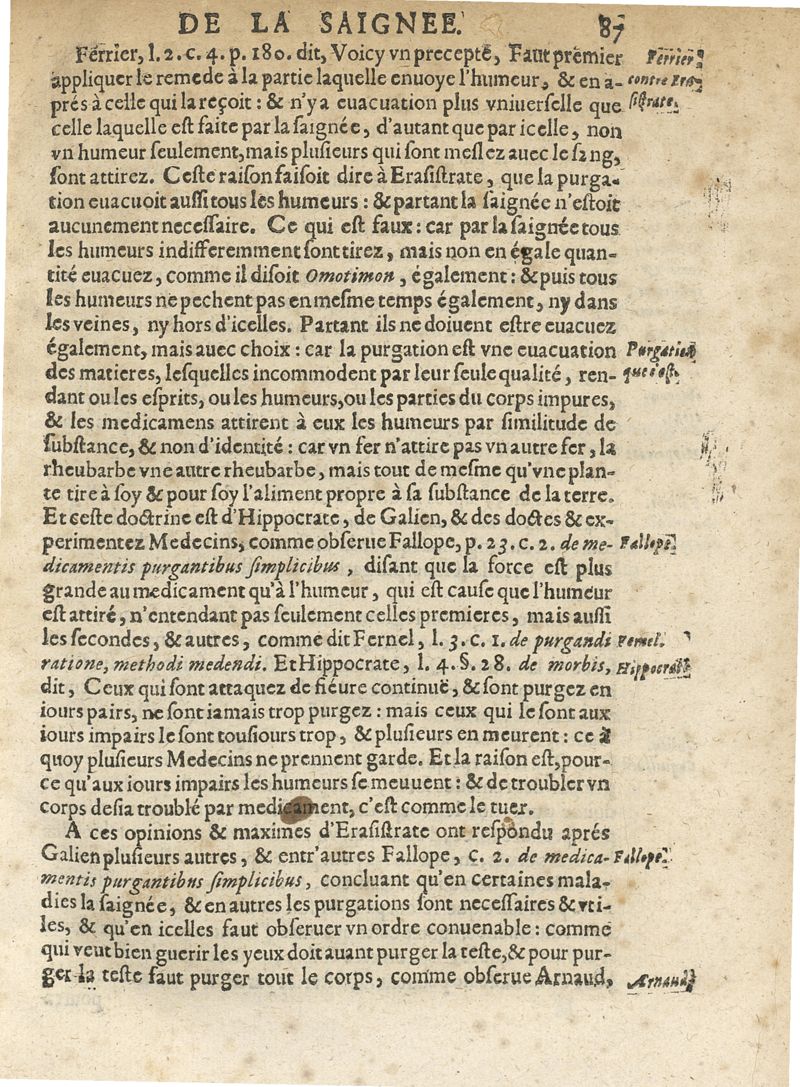 DE LA SAIGNEE. 87
Ferrier, l. 2. c. 4. p. 180. dit, Voicy vn precepte, Faut premier
Ferrier
appliquer le remede à la partie laquelle enuoye l'humeur, & en a-
contre Era-
prés à celle qui la reçoit : & n'y a euacuation plus vniuerselle que
sistrate.
celle laquelle est faite par la saignée, d'autant que par icelle, non
vn humeur seulement, mais plusieurs qui sont meslez auec le sang,
sont attirez. Ceste raison faisoit dire à Erasistrate, que la purga-
tion euacuoit aussi tous les humeurs : & partant la saignée n'estoit
aucunement necessaire. Ce qui est faux : car par la saignée tous
les humeurs indifferemment sont tirez, mais non en égale quan-
tité euacuez, comme il disoit Omotimon, également : & puis tous
les humeurs ne pechent pas en mesme temps également, ny dans
les veines, ny hors d'icelles. Partant ils ne doiuent estre euacuez
également, mais auec choix : car la purgation est vne euacuation
Purgation
des matieres, lesquelles incommodent par leur seule qualité, ren-
que c'est.
dant ou les esprits, ou les humeurs, ou les parties du corps impures,
& les medicamens attirent à eux les humeurs par similitude de
substance, & non d'identité : car vn fer n'attire pas vn autre fer, la
rheubarbe vne autre rheubarbe, mais tout de mesme qu'vne plan-
te tire à soy & pour soy l'aliment propre à sa substance de la terre.
Et ceste doctrine est d'Hippocrate, de Galien, & des doctes & ex-
perimentez Medecins, comme obserue Fallope, p. 23. c. 2. de me-
Fallope
dicamentis purgantibus simplicibus, disant que la force est plus
grande au medicament qu'à l'humeur, qui est cause que l'humeur
est attiré, n'entendant pas seulement celles premieres, mais aussi
les secondes, & autres, comme dit Fernel, l. 3. c. 1. de purgandi
Fernel.
ratione, methodi medendi. Et Hippocrate, l. 4. §. 28. de morbis,
Hippocrate
dit, Ceux qui sont attaquez de fiéure continuë, & sont purgez en
iours pairs, ne sont iamais trop purgez : mais ceux qui le sont aux
iours impairs le sont tousiours trop, & plusieurs en meurent : ce à
quoy plusieurs Medecins ne prennent garde. Et la raison est, pour-
ce qu'aux iours impairs les humeurs se meuuent : & de troubler vn
corps desia troublé par medicament, c'est comme le tuer.
A ces opinions & maximes d'Erasistrate ont respondu aprés
Galien plusieurs autres, & entr'autres Fallope, c. 2. de medica-
Fallope.
mentis purgantibus simplicibus, concluant qu'en certaines mala-
dies la saignée, & en autres les purgations sont necessaires & vti-
les, & qu'en icelles faut obseruer vn ordre conuenable : comme
qui veut bien guerir les yeux doit auant purger la teste, & pour pur-
ger la teste faut purger tout le corps, comme obserue Arnaud,
Arnaud